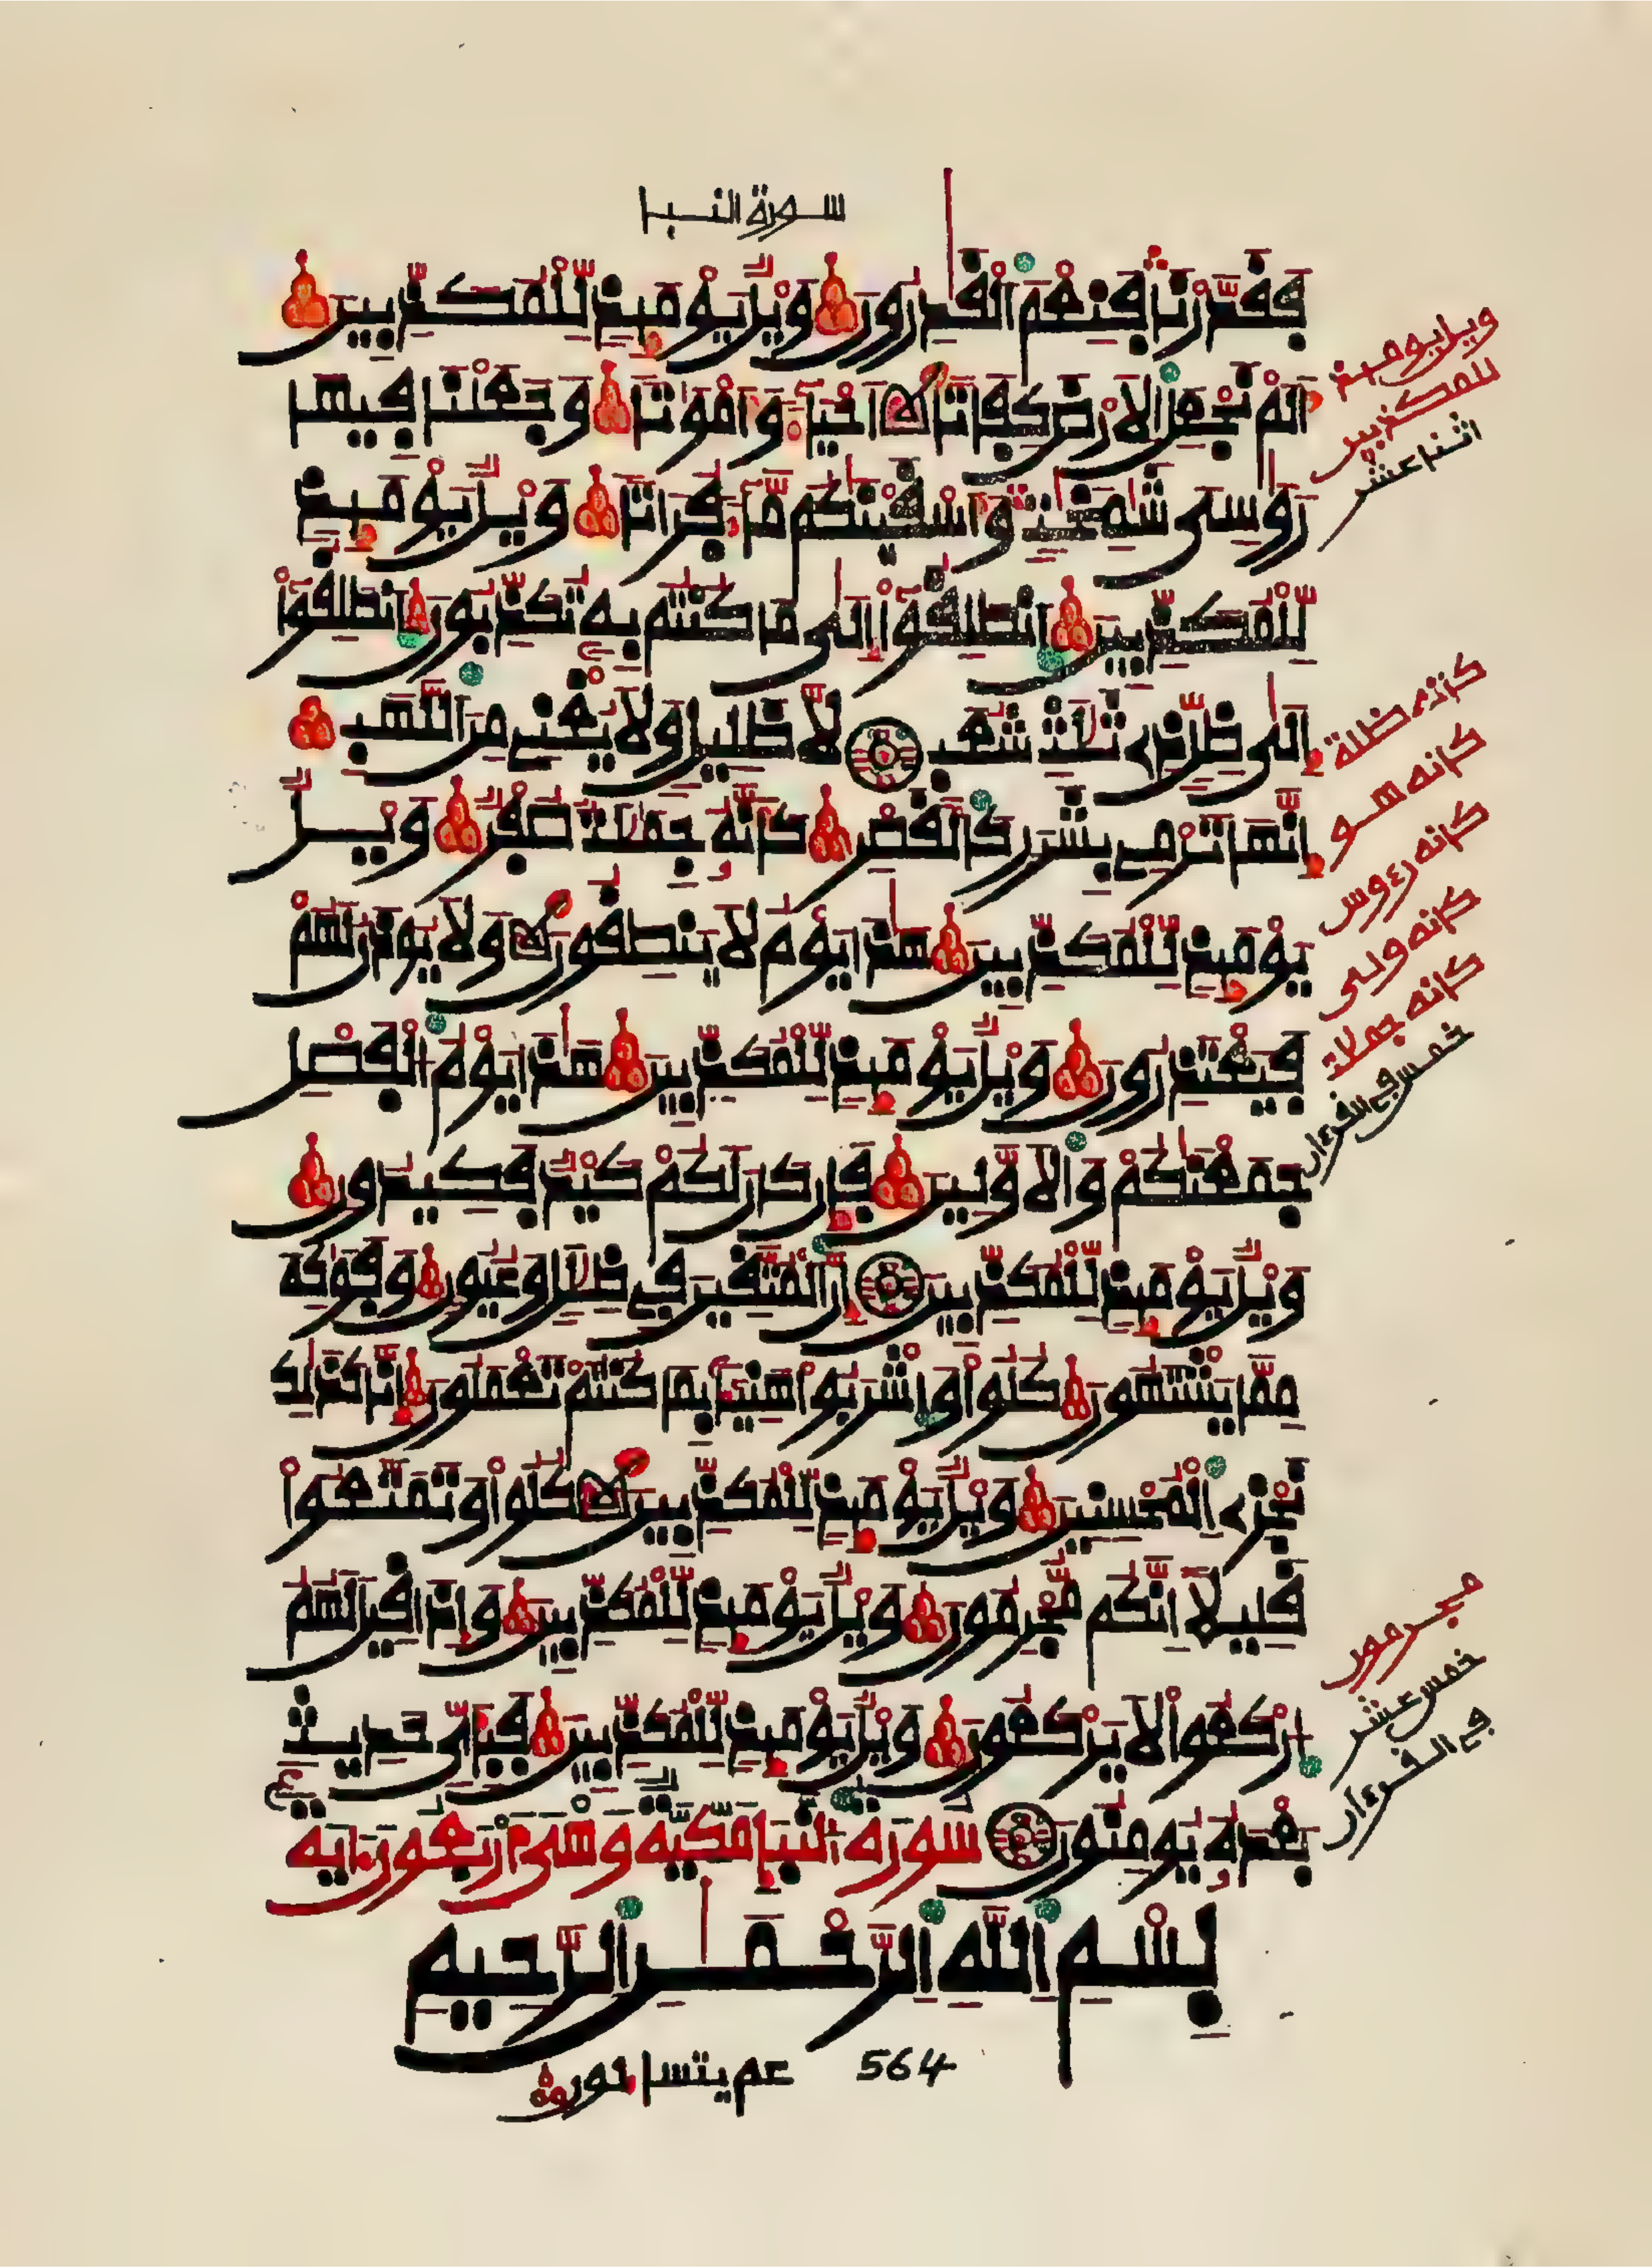 سورة النبإ
فَقَدَّرْنَا فَنِعْمَ الْقَٰدِرُونَ وَيْلٌ يَوْمَئِذٍ لِّلْمُكَذِّبِينَ
أَلَمْ نَجْعَلِ الْأَرْضَ كِفَاتًا أَحْيَآءً وَأَمْوَٰتًا وَجَعَلْنَا فِيهَا
رَوَٰسِىَ شَٰمِخَٰتٍ وَأَسْقَيْنَٰكُم مَّآءً فُرَاتًا وَيْلٌ يَوْمَئِذٍ
لِّلْمُكَذِّبِينَ انطَلِقُوٓا۟ إِلَىٰ مَا كُنتُم بِهِۦ تُكَذِّبُونَ انطَلِقُوٓا۟
إِلَىٰ ظِلٍّ ذِى ثَلَٰثِ شُعَبٍ لَّا ظَلِيلٍ وَلَا يُغْنِى مِنَ اللَّهَبِ
إِنَّهَا تَرْمِى بِشَرَرٍ كَالْقَصْرِ كَأَنَّهُۥ جِمَٰلَٰتٌ صُفْرٌ وَيْلٌ
يَوْمَئِذٍ لِّلْمُكَذِّبِينَ هَٰذَا يَوْمُ لَا يَنطِقُونَ وَلَا يُوذَنُ لَهُمْ
فَيَعْتَذِرُونَ وَيْلٌ يَوْمَئِذٍ لِّلْمُكَذِّبِينَ هَٰذَا يَوْمُ الْفَصْلِ
جَمَعْنَٰكُمْ وَالْأَوَّلِينَ فَإِن كَانَ لَكُمْ كَيْدٌ فَكِيدُونِ
وَيْلٌ يَوْمَئِذٍ لِّلْمُكَذِّبِينَ إِنَّ الْمُتَّقِينَ فِى ظِلَٰلٍ وَعُيُونٍ وَفَوَٰكِهَ
مِمَّا يَشْتَهُونَ كُلُوا۟ وَاشْرَبُوا۟ هَنِيٓـًٔا بِمَا كُنتُمْ تَعْمَلُونَ إِنَّا كَذَٰلِكَ
نَجْزِى الْمُحْسِنِينَ وَيْلٌ يَوْمَئِذٍ لِّلْمُكَذِّبِينَ كُلُوا۟ وَتَمَتَّعُوا۟
قَلِيلًا إِنَّكُم مُّجْرِمُونَ وَيْلٌ يَوْمَئِذٍ لِّلْمُكَذِّبِينَ وَإِذَا قِيلَ لَهُمُ
ارْكَعُوا۟ لَا يَرْكَعُونَ وَيْلٌ يَوْمَئِذٍ لِّلْمُكَذِّبِينَ فَبِأَىِّ حَدِيثٍۭ
بَعْدَهُۥ يُومِنُونَ سُورَةُ النَّبَإِ مَكِّيَّةٌ وَهْىَ أَرْبَعُونَ ءَايَةً
بِسْمِ اللَّهِ الرَّحْمَٰنِ الرَّحِيمِ
عم يتساءلون
564
ويل يومئذ
للمكذبين
اثنا عشر
كأنه ظلة
كأنه هو
كأنه رءوس
كأنه ولى
كأنه جملات
خمس في القرءان
مجرمون
خمس عشر
في القرءان